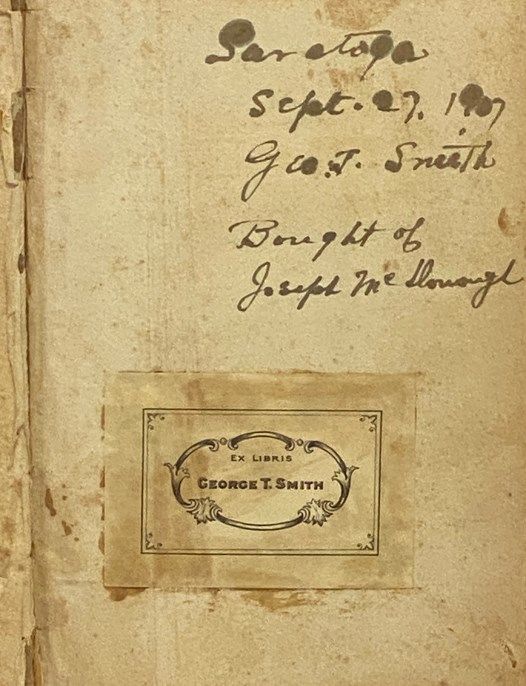 Saratoga
Sept. 27, 1907
Geo. T. Smith
Bought of
Joseph McDonough
EX LIBRIS
GEORGE T. SMITH